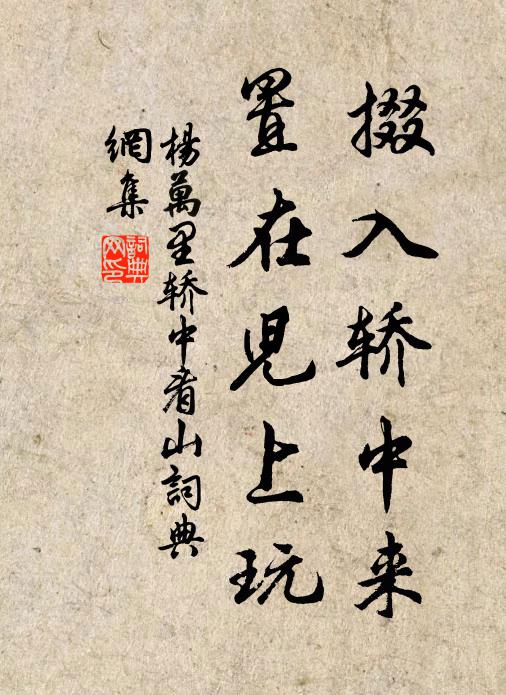 掇入轿中来
置在児上玩
楊萬里轿中看山詞典
網集
詞典
网印